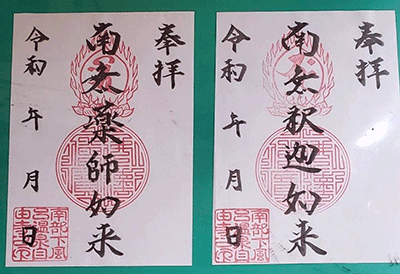 奉拝
南无薬師如来
令和 年 月 日
南部下風
呂温泉
奉拝
南无釈迦如来
令和 年 月 日
南部下風
呂温泉